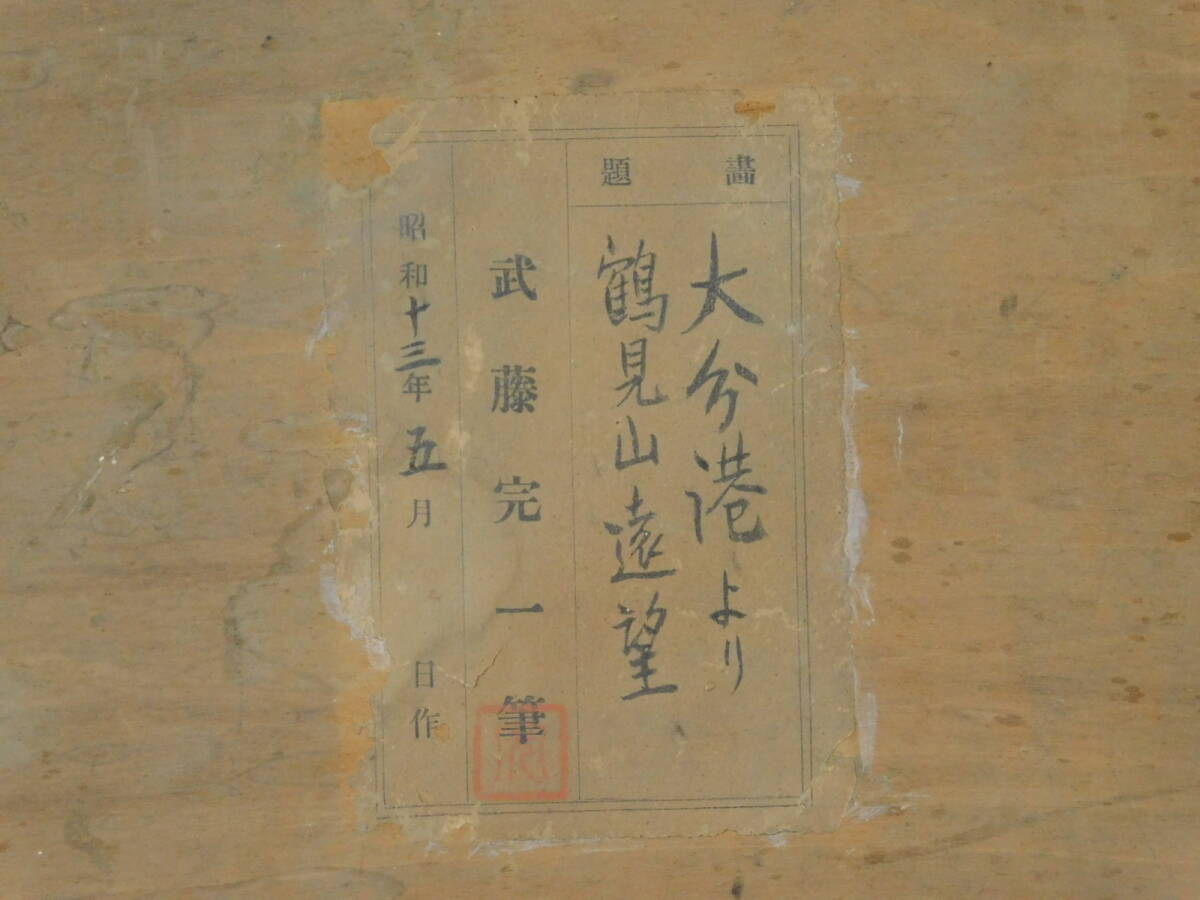 畵題
大分港より
鶴見山遠望
武藤完一筆
昭和十三年五月 日作